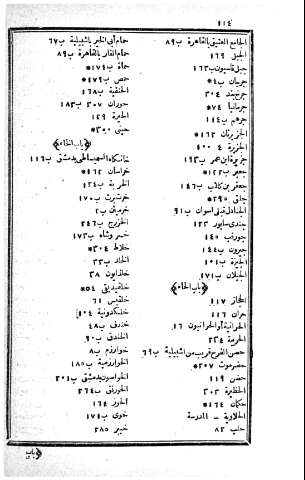 ١١٤
الجامع العتيق بالقاهرة ب٨٩
الجبل ١٦٩
جبل قاسيون ب١٦٣
جربان ب٤*
جرجند ٢٠٤
جرمانيا ٧٤*
جرهم ب١١٤
الجزيرتان ١٦٢*
الجزيرة ٤ ١٠٠
جزيرة ابن عمر ب١٩٣
جعبر ب١٢٢*
جعفر بن كلاب ب١٤٦
جلق ٢٩٥*
الجنادل قبلى اسوان ب٩١
جندى سابور ١٢٣
جورقب ١٤٥
جيرون ب١٤٤
الجيزة ب١٠١
الجيلان ب١٧١
﴿باب الحاء﴾
الحجاز ١١٧
حران ١١٦
الحرنانية أو الحرانيون ١٦
الحرمية ٢٣٤
حصن الفرج قريب من اشبيلية ب٦٩
حضرموت ٢٠٧*
حضن ١١٩
الحظيرة ٢٠٢
حكمان ١٦٤*
الحلاوية — المدرسة
حلب ٨٢
حمام أبى الخير باشبيلية ب٦٧
حمام الفار بالقاهرة ب٨٩
حماة ١٧٤*
حمص ب١٧٩*
الحنفية ب١٦٨
حوران ٢٠٧ ب١٨٣
الحيرة ١٢٩
حينى ٣٠٠*
﴿باب الخاء﴾
خانكاه السميساطى بدمشق ب١١٦
خراسان ١٦٢*
الخربة ب١٢٤
خرتبرت ب١٧٠
خرميثن ب٢
الخزرج ب٢٤٦
خسرو شاه ب١٧٣
خلاط ٢٠٤*
الخلد ب٢٢
خلقدون ٣٨
خلقيدنى ٥٤*
خلقيس ٦١
خلكدونية ١٠٤
خندف ب٤٨
الخندق ب٩٠
خوارزم ب٨
الخوارزمية ب١٨٥
الخواصين بدمشق ب٢٠١
الخورنق ب٢٦٤
الخوز ١٦٤
خوى ب١٧١
خيبر ٢٨٥
﴿باب